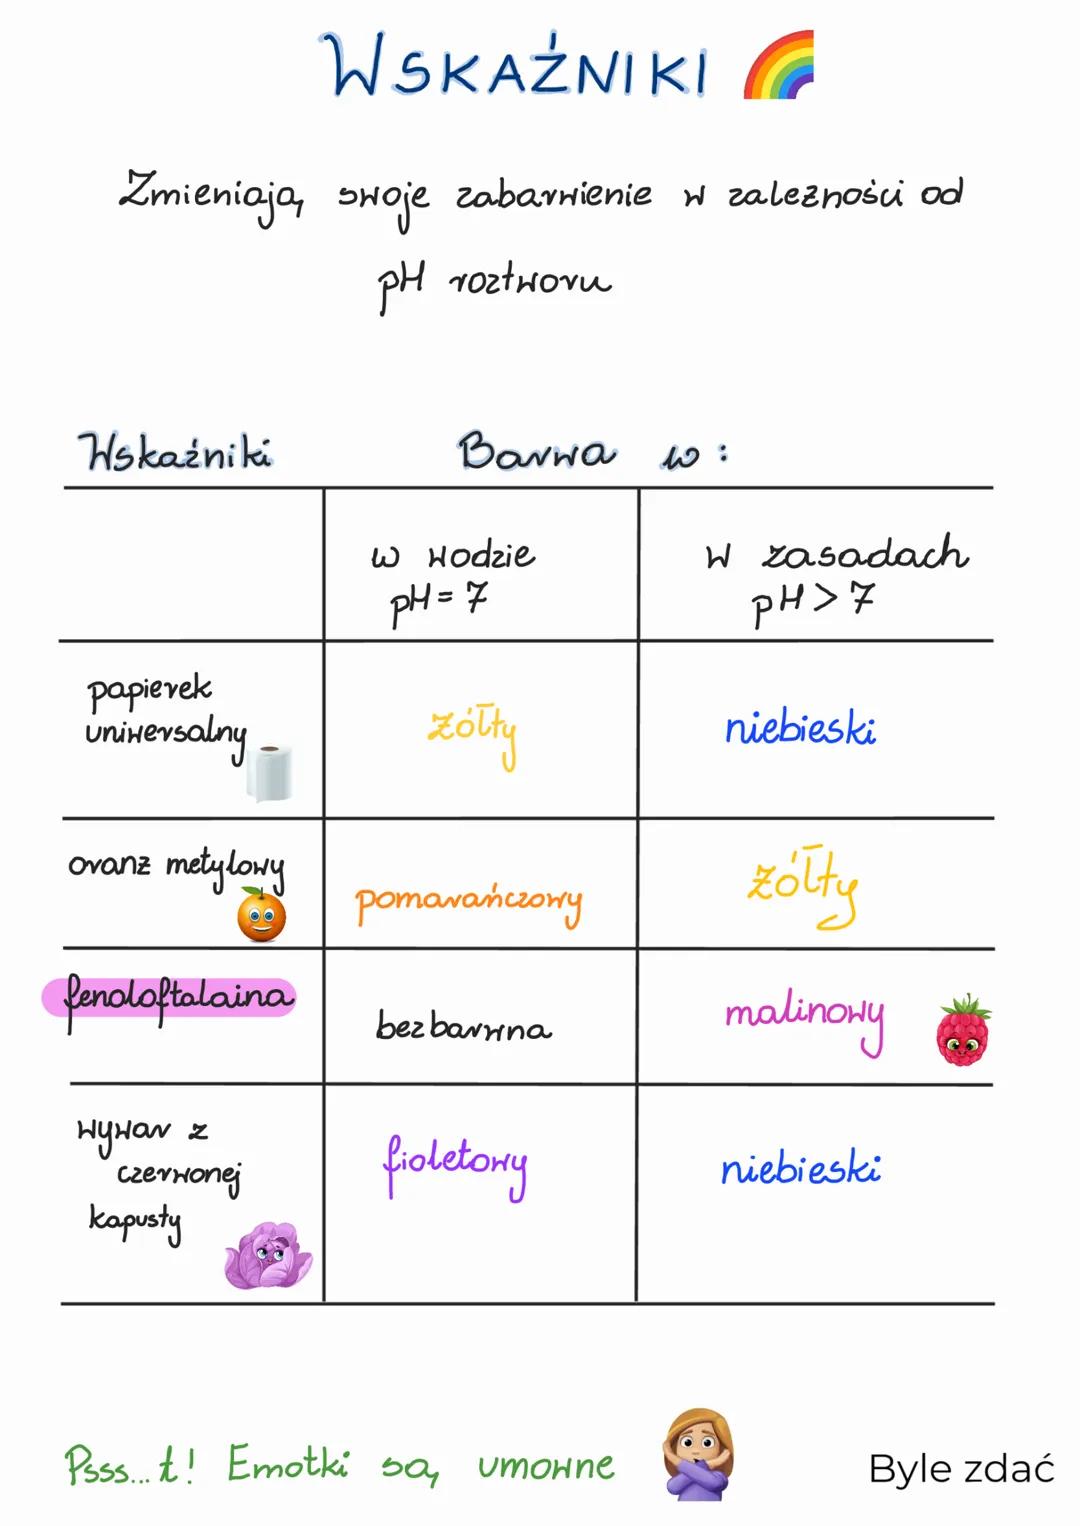 WSKAŹNIKI
Zmieniają swoje zabarwienie w zależności od
pH roztworu
Wskaźniki Barwa w:
w wodzie w zasadach
pH = 7 pH > 7
papierek
uniwersalny żółty niebieski
oranż metylowy pomarańczowy żółty
fenoloftalaina bezbarwna malinowy
wywar z
czerwonej
kapusty fioletowy niebieski
Psss...t! Emotki są umowne
Byle zdać